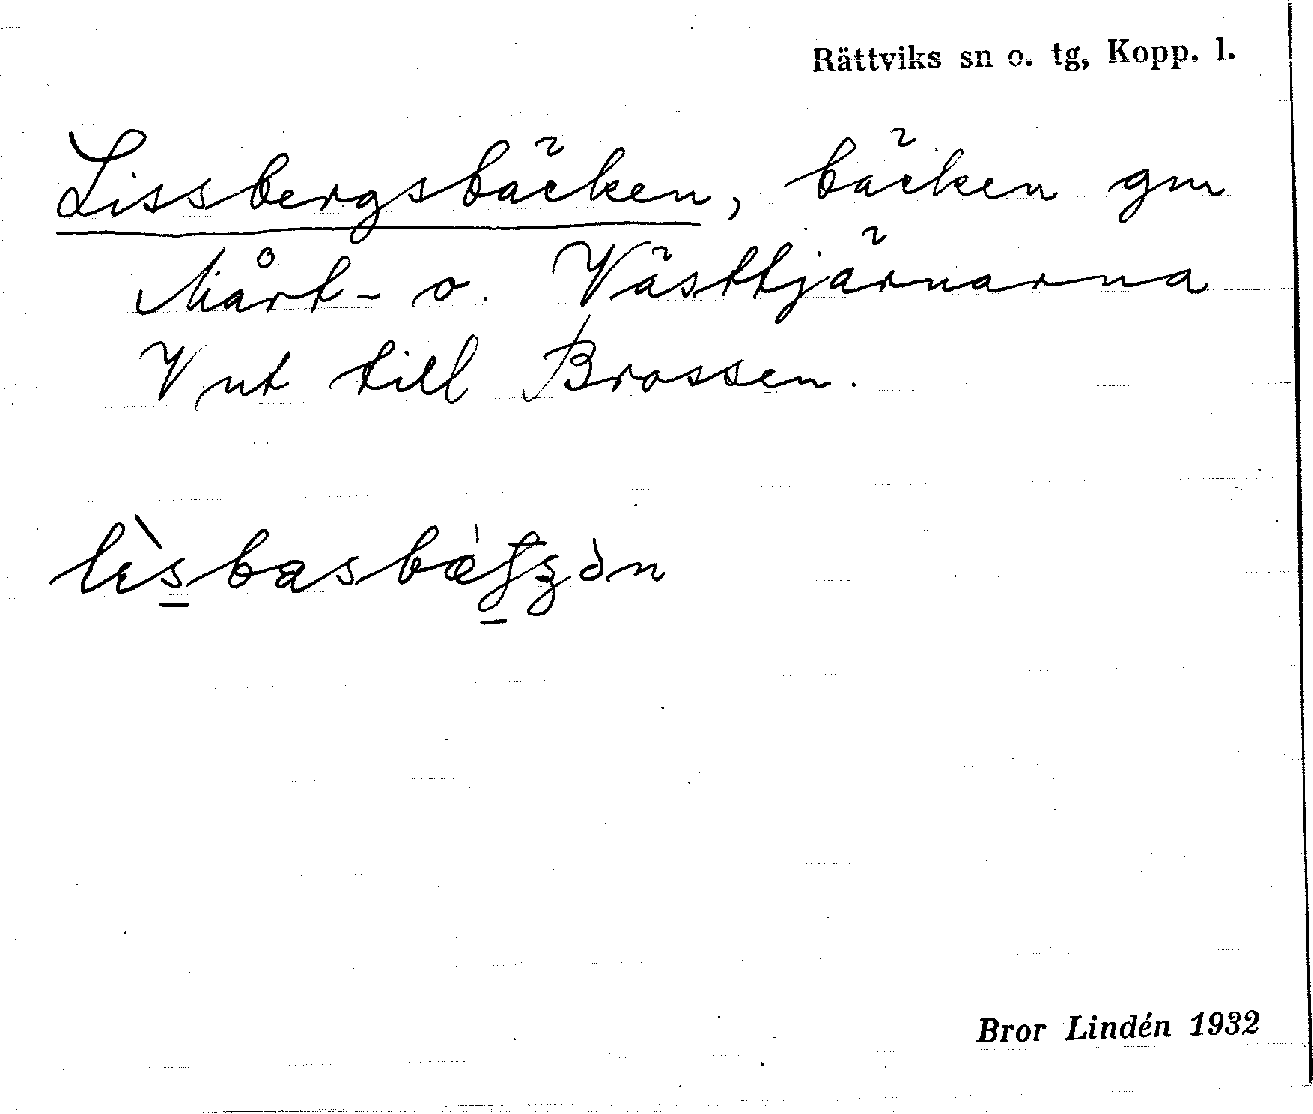 Rättviks sn o. tg, Kopp. l.
Lissbergsbäcken, bäcken gm
Mårt- o. Västtjärnarna
V ut till Brossen.
Bror Lindén 1932